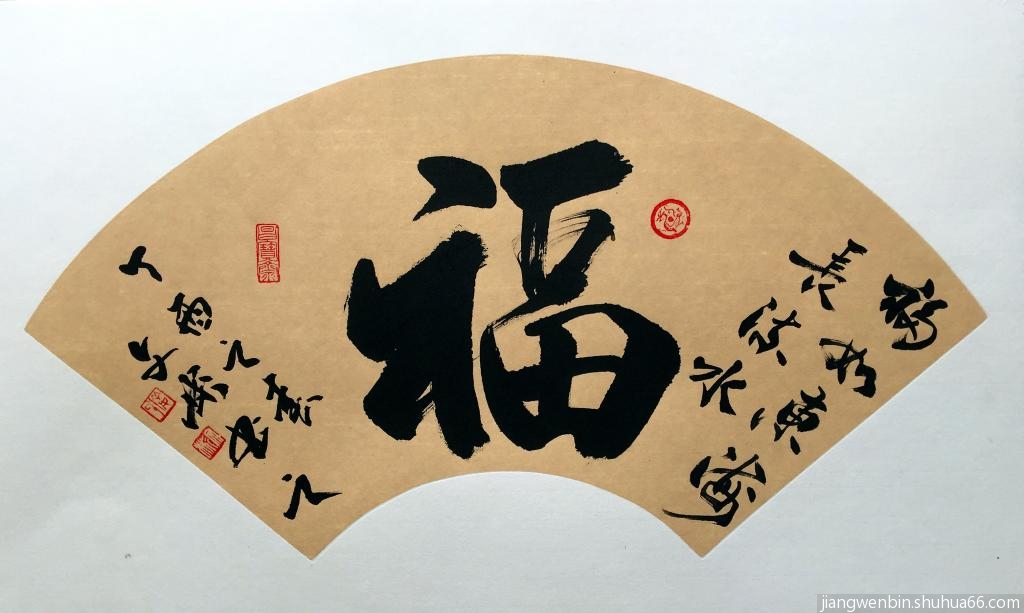 福
福如東海
長流水
丁酉之夏
文書
jiangwenbin.shuhua66.com